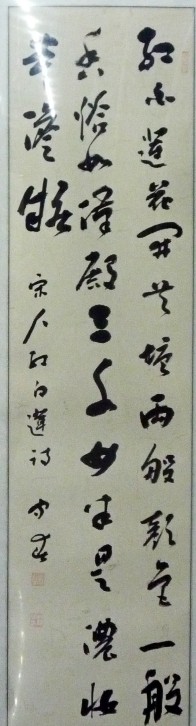 紅白蓮花開共塘兩般顏色一般
香恰如漢殿三千女半是濃妝
半澹粧
宋人紅白蓮詩